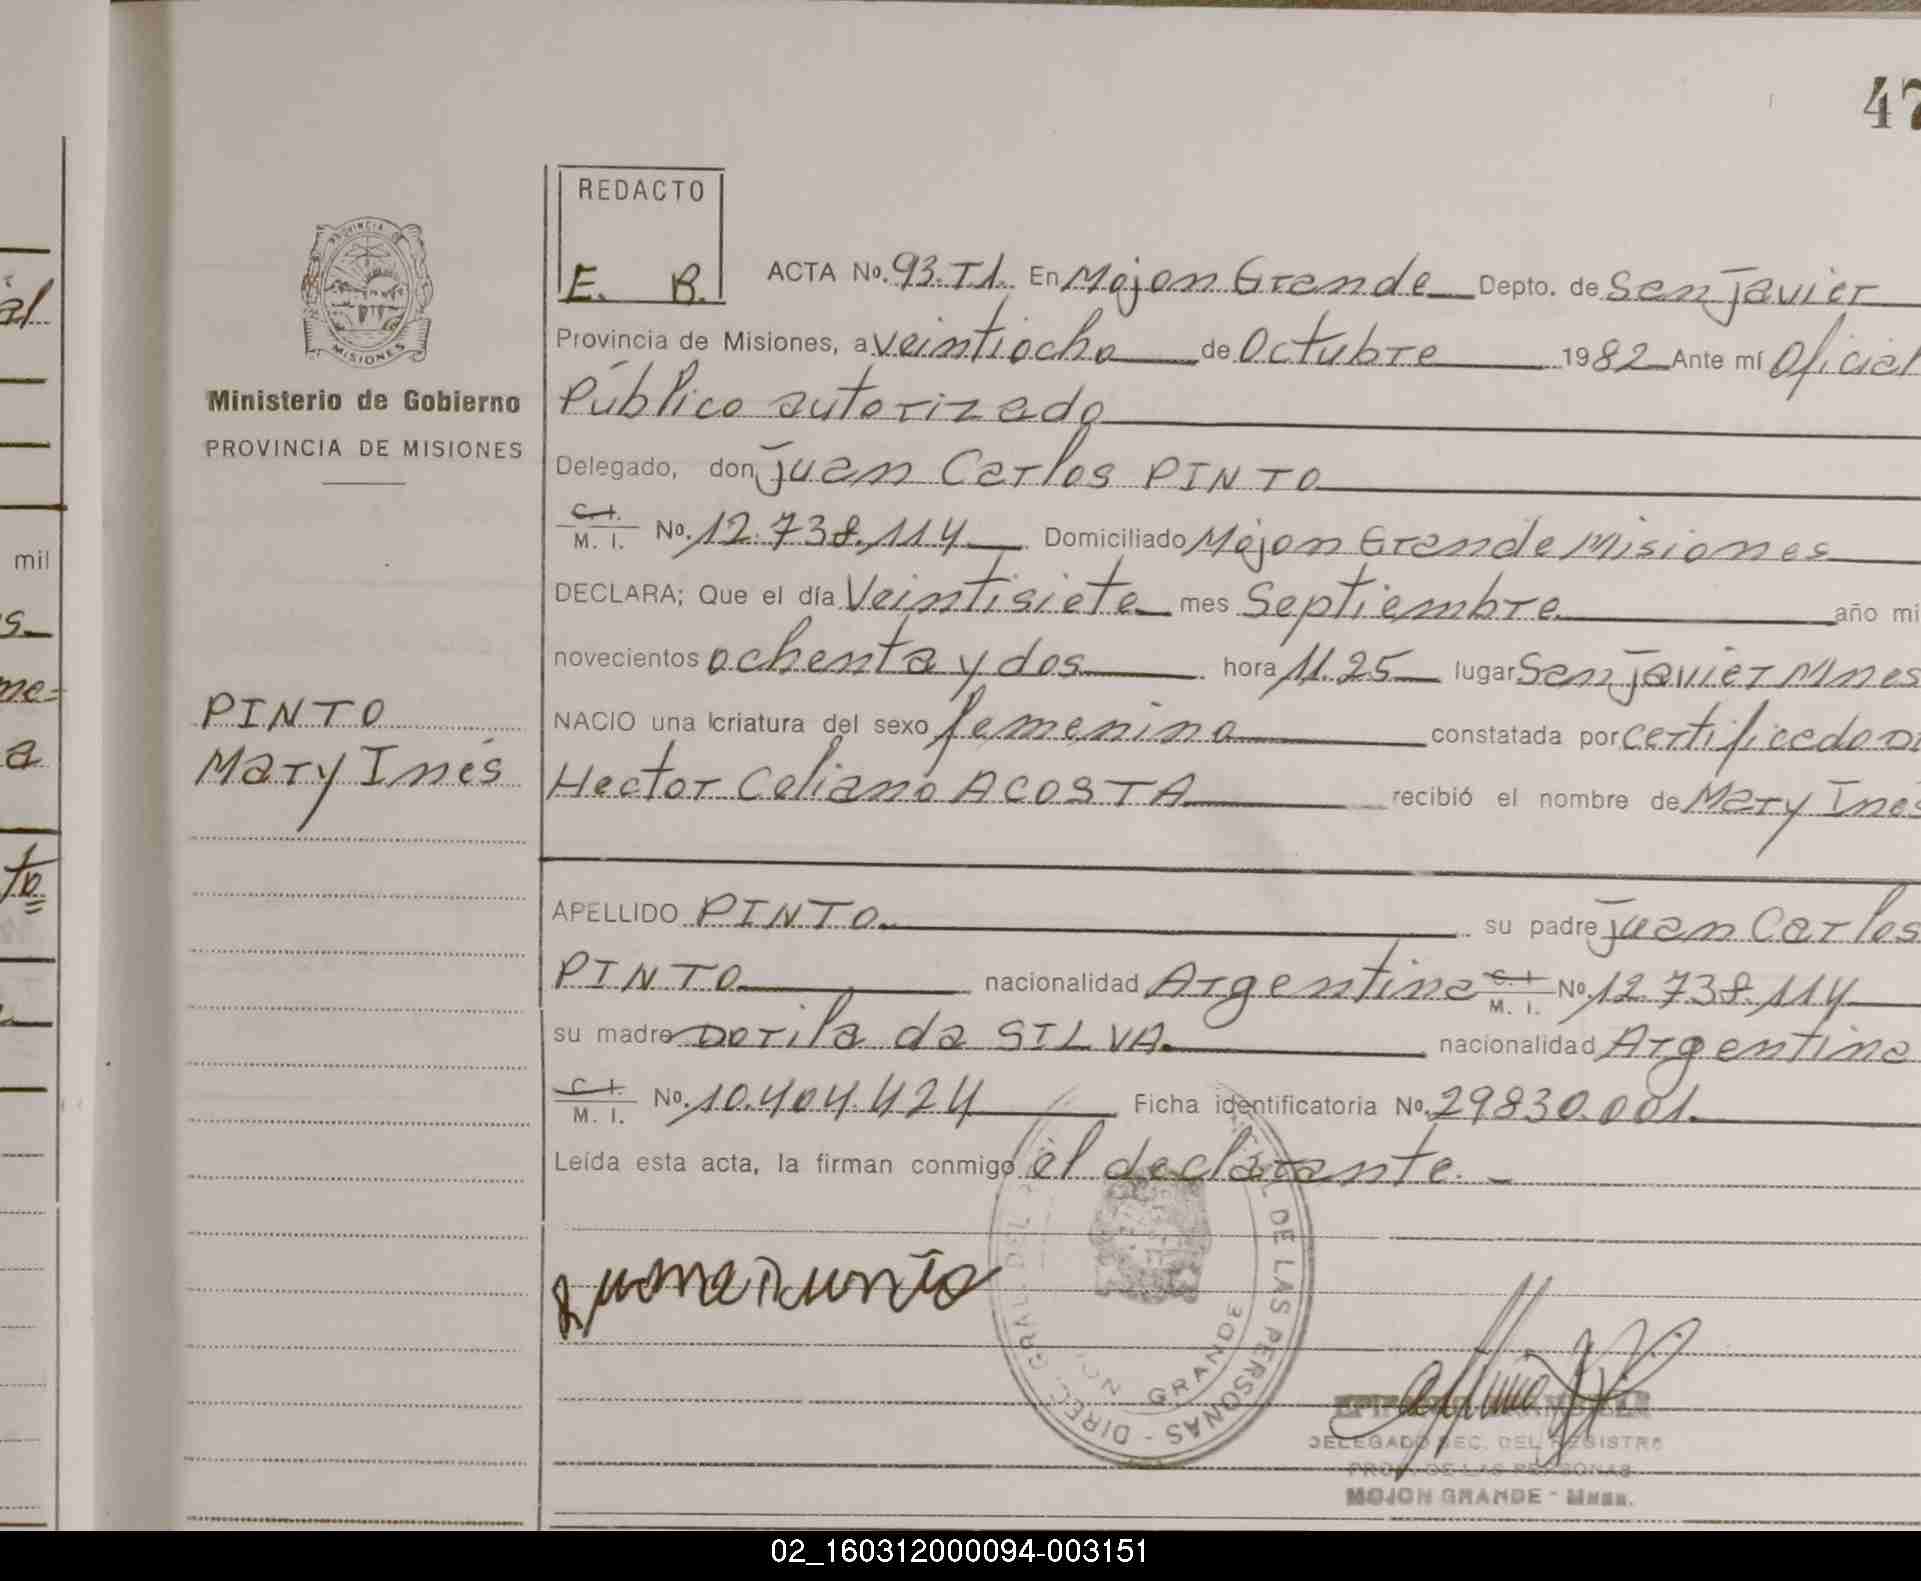 47
REDACTO
E. B.
PROVINCIA DE
MISIONES
Ministerio de Gobierno
PROVINCIA DE MISIONES
PINTO
Mary Inés
ACTA No. 93.T1. En Mojon Grande Depto. de San Javier
Provincia de Misiones, a veintiocho de Octubre 1982 Ante mí Oficial
Público autorizado
Delegado, don Juan Carlos PINTO
C. I. M. I. No. 12.738.114 Domiciliado Mojon Grande Misiones
DECLARA; Que el día Veintisiete mes Septiembre año mi
novecientos ochenta y dos hora 11.25 lugar San Javier Mnes
NACIO una criatura del sexo femenino constatada por certificado D
Hector Celiano ACOSTA recibió el nombre de Mary Inés
APELLIDO PINTO su padre Juan Carlos
PINTO nacionalidad Argentina C. I. M. I. No 12.738.114
su madre Dorila da SILVA nacionalidad Argentina
C. I. M. I. No. 10.404.424 Ficha identificatoria No. 29830.001.
Leída esta acta, la firman conmigo el declarante.
DIREC. GRAL. DEL DE LAS PERSONAS
GRANDE
DELEGADO SEC. DEL REGISTRO
PROV. DE LAS PERSONAS
MOJON GRANDE - Mnes.
mil
02_160312000094-003151